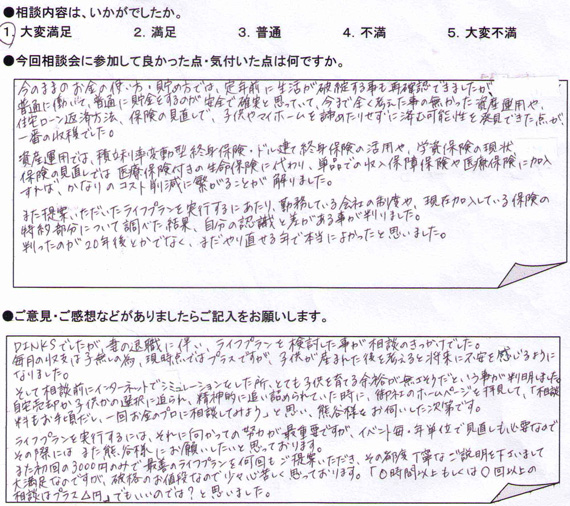 ●相談内容は、いかがでしたか。
1. 大変満足 2. 満足 3. 普通 4. 不満 5. 大変不満
●今回相談会に参加して良かった点・気付いた点は何ですか。
今のままのお金の使い方・貯め方では、定年前に生活が破綻する事も再確認できましたが、
普通に働いて、普通に貯金をするのが安全で確実と思っていて、今まで全く考えた事の無かった資産運用や、
住宅ローン返済方法、保険の見直しで、子供やマイホームを諦めたりせずに済む可能性を発見できた点が、
一番の収穫でした。
資産運用では、積立利率変動型終身保険・ドル建て終身保険の活用や、学資保険の現状
保険の見直しでは医療保険付きの生命保険に代わり、単品での収入保障保険や医療保険に加入
すれば、かなりのコスト削減に繋がることが解りました。
また提案いただいたライフプランを実行するにあたり、勤務している会社の制度や、現在加入している保険の
特約部分について調べた結果、自分の認識と差がある事が判りました。
判ったのが20年後とかでなく、まだやり直せる今で本当によかったと思いました。
●ご意見・ご感想などがありましたらご記入をお願いします。
DINKSでしたが、妻の退職に伴い、ライフプランを検討した事が相談のきっかけでした。
毎月の収支は子無しの為、現時点ではプラスですが、子供が産まれた後を考えると将来に不安を感じるように
なりました。
そして相談前にインターネットでシミュレーションをした所、とても子供を育てる余裕が無さそうだという事が判明しました。
自宅売却か子供かの選択に迫られ、精神的に追い詰められていた時に、御社のホームページを拝見して、「相談
料もお手頃だし、一回お金のプロに相談してみよう」と思い、熊谷様をお伺いした次第です。
ライフプランを実行するには、それに向かっての努力が最重要ですが、イベント毎・年単位で見直しも必要なので
その際には、また熊谷様にお願いしたいと思っております。
また初回の3000円のみで最善のライフプランを何回もご提案いただき、その都度丁寧なご説明を下さいまして
大満足なのですが、破格のお値段なので少々心苦しく思っております。「○時間以上もしくは○回以上の
相談はプラス△円」でもいいのでは?と思いました。